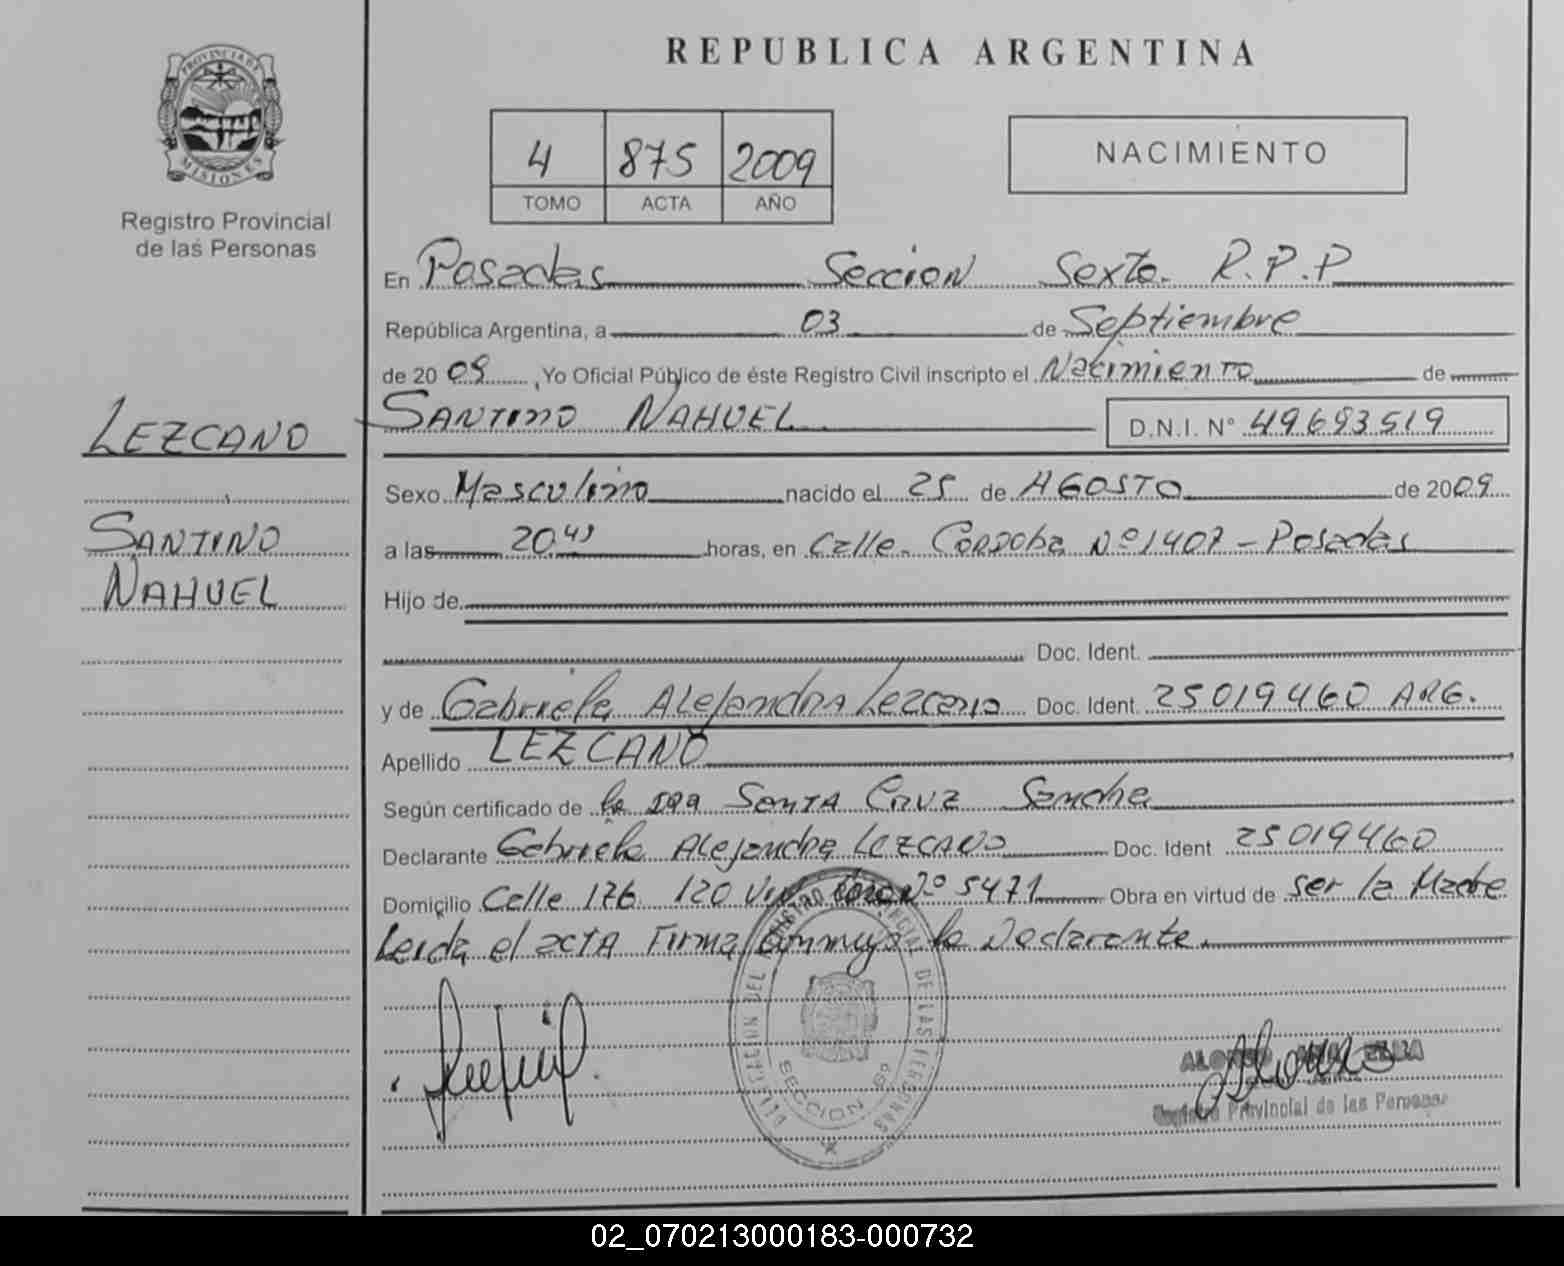 REPUBLICA ARGENTINA
PROVINCIA DE MISIONES
Registro Provincial
de las Personas
4 875 2009
TOMO ACTA AÑO
NACIMIENTO
En Posadas Seccion Sexta R.P.P
República Argentina, a 03 de Septiembre
de 2009 ,Yo Oficial Público de éste Registro Civil inscripto el Nacimiento de
SANTINO NAHUEL D.N.I. N° 49693519
LEZCANO
SANTINO
NAHUEL
Sexo Masculino nacido el 25 de AGOSTO de 2009
a las 20 45 horas, en Calle Cordoba Nº 1407 - Posadas
Hijo de
Doc. Ident.
y de Gabriela Alejandra Lezcano Doc. Ident. 25019460 ARG.
Apellido LEZCANO
Según certificado de la Santa Cruz Sandra
Declarante Gabriela Alejandra LEZCANO Doc. Ident 25019460
Domicilio Calle 176 120 Viv Nº 5471 Obra en virtud de ser la Madre
Leida el acta Firma conmigo la Declarante.
DIRECCION DEL REGISTRO PROVINCIAL DE LAS PERSONAS
SECCION 6ª
ALONSO ELBA
Registro Provincial de las Personas
02_070213000183-000732